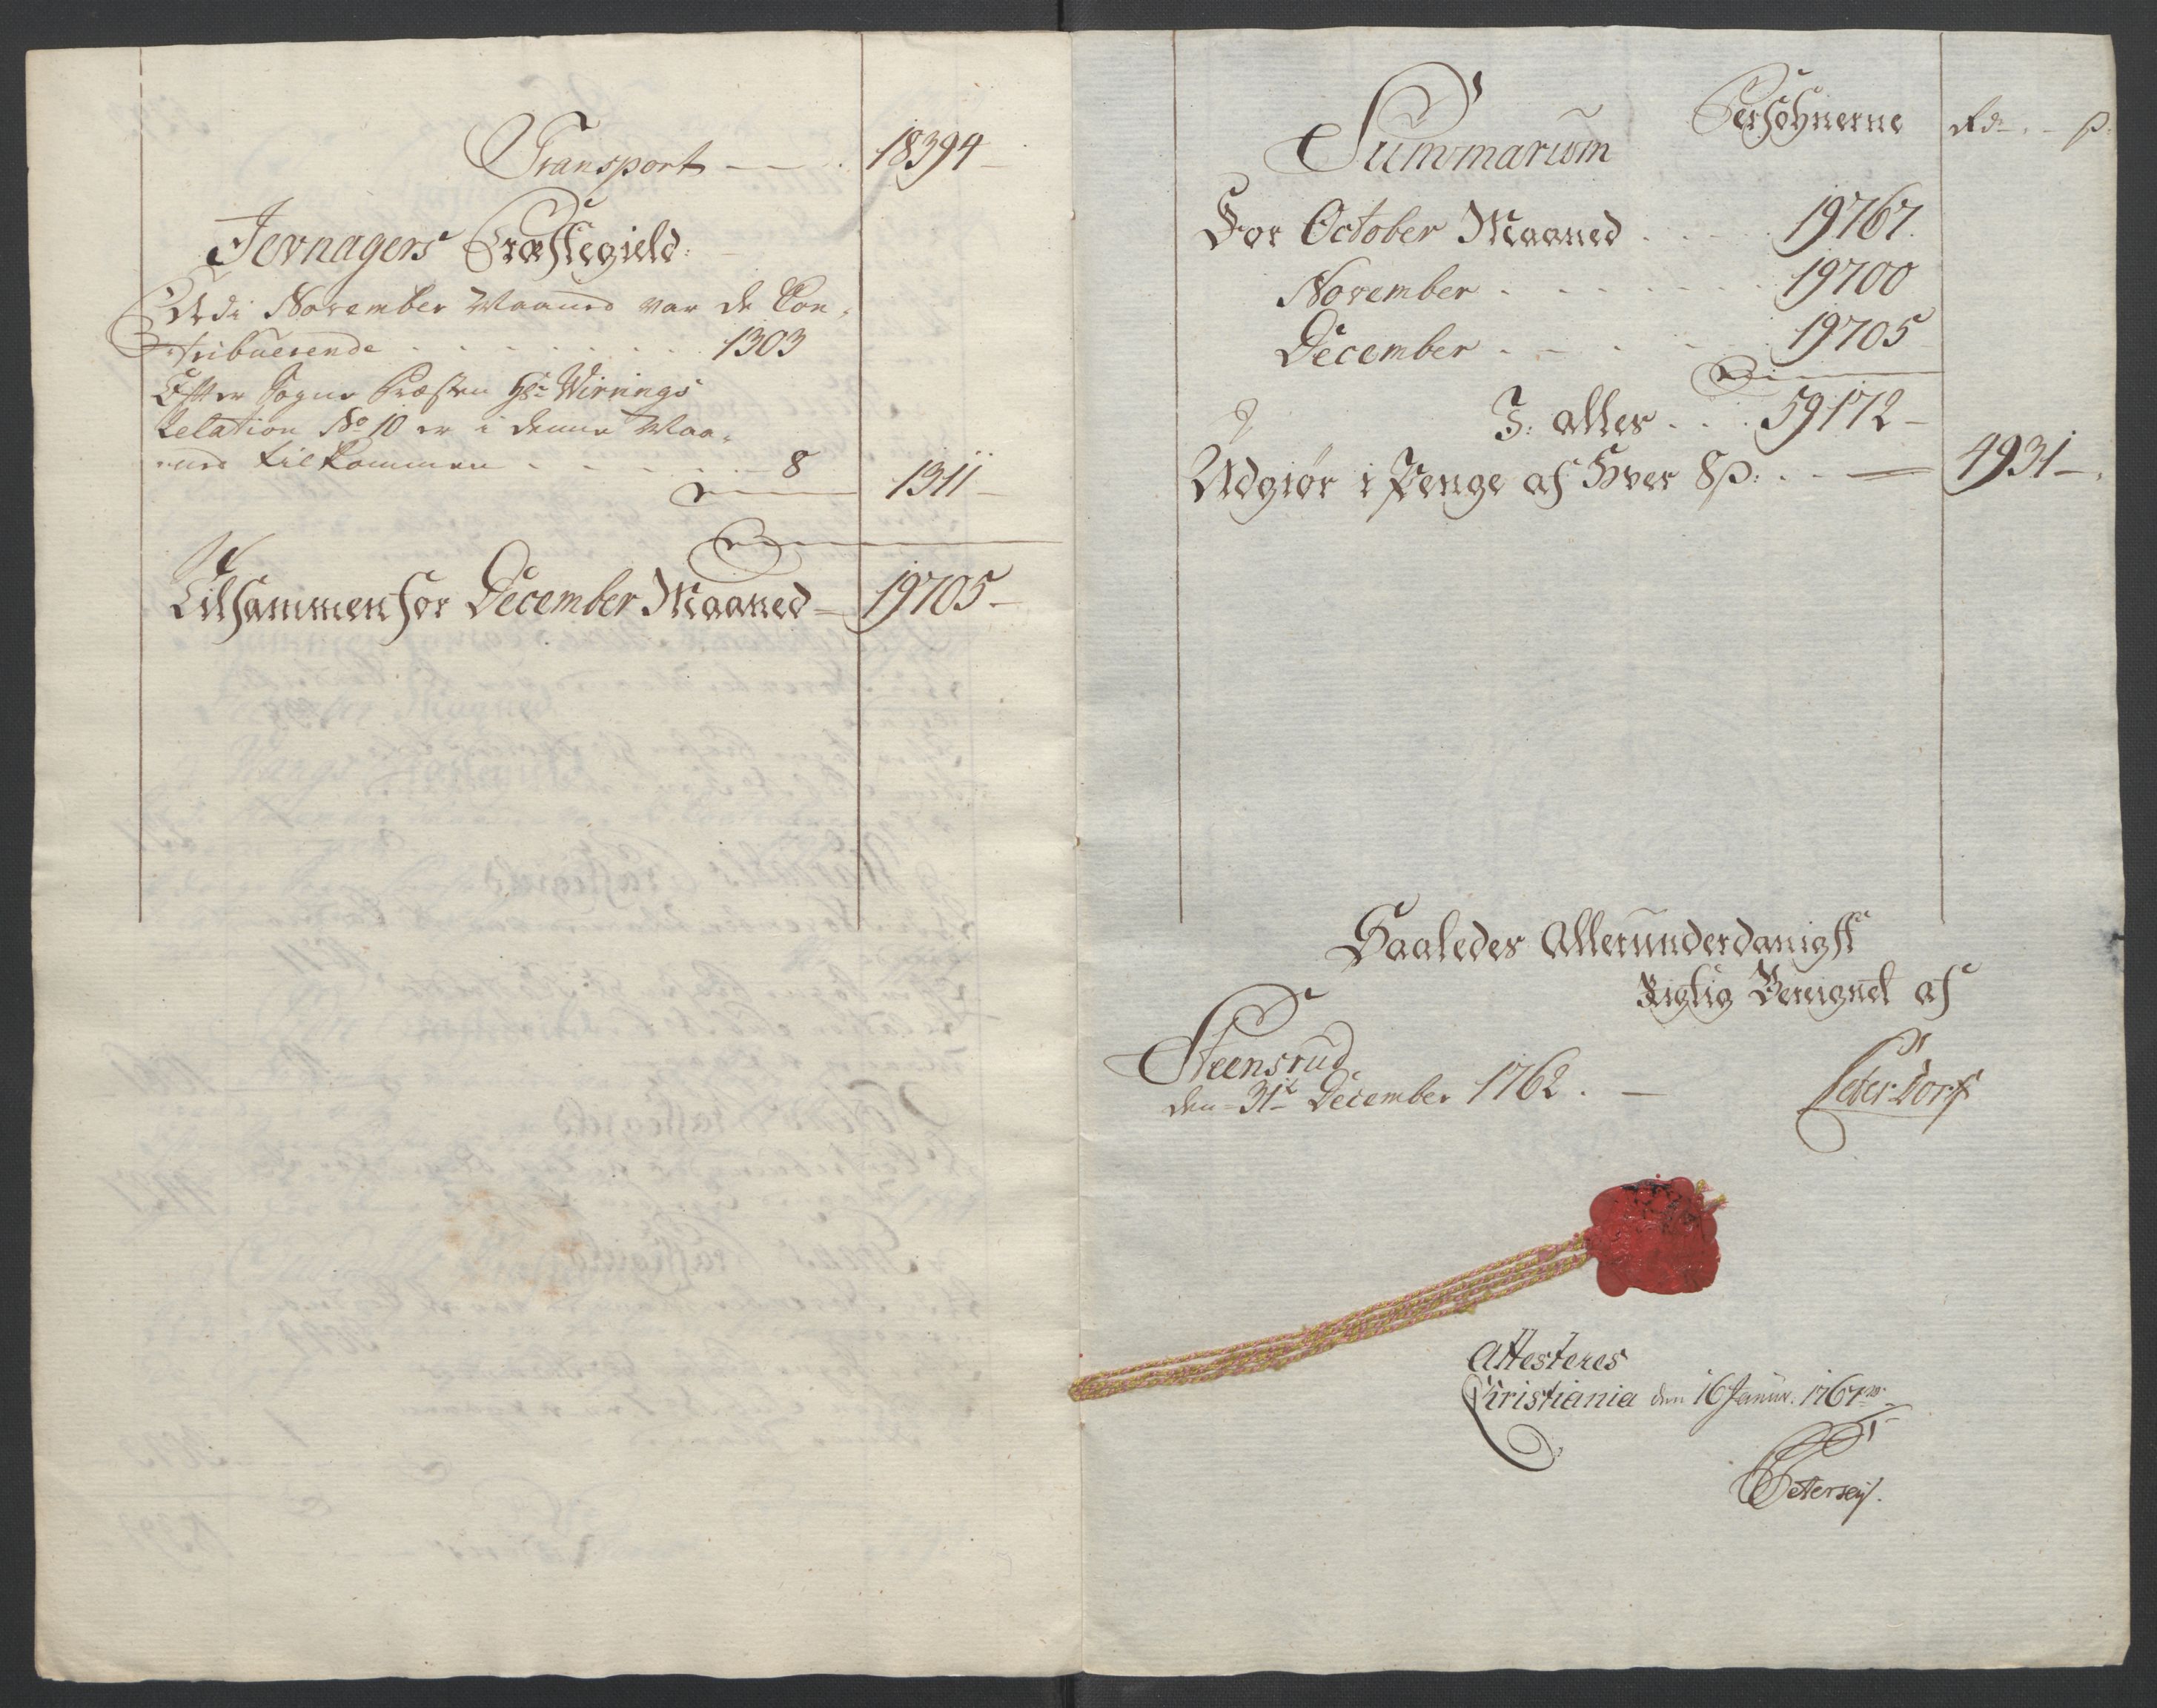 Transport 18394
Jevnagers Præstegield:
Udi November Maaned var de Con-
tribuerende 1303
Efter Sogne Præsten Hr Wirnings
Relation No 10 er i denne Maa-
ned tilkommen 8 1311
Tilsammen for December Maaned 19705
Summarium Persohnerne Rdr p
For October Maaned 19767
November 19700
December 19705
I alles 59172
Udgiør i Penge af Hver 8 p: 4931
Saaledes Allerunderdanigst
Rigtig Bereignet af
Steensrud
den 31te December 1762. Peter Dorf
Attesteres
Christiania den 16 Januar: 176
Pettersen.